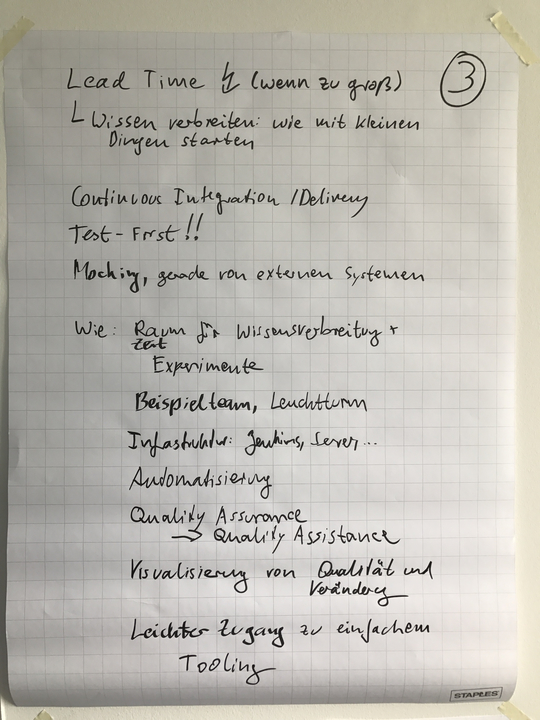 Lead Time ↯ (wenn zu groß)
③
└ Wissen verbreiten: wie mit kleinen
Dingen starten
Continuous Integration / Delivery
Test-First!!
Mocking, gerade von externen Systemen
Wie: Raum für Wissensverbreitung +
Zeit
Experimente
Beispielteam, Leuchtturm
Infrastruktur: Jenkins, Server...
Automatisierung
Quality Assurance
→ Quality Assistance
Visualisierung von Qualität und
Veränderung
Leichter Zugang zu einfachem
Tooling
STAPLES